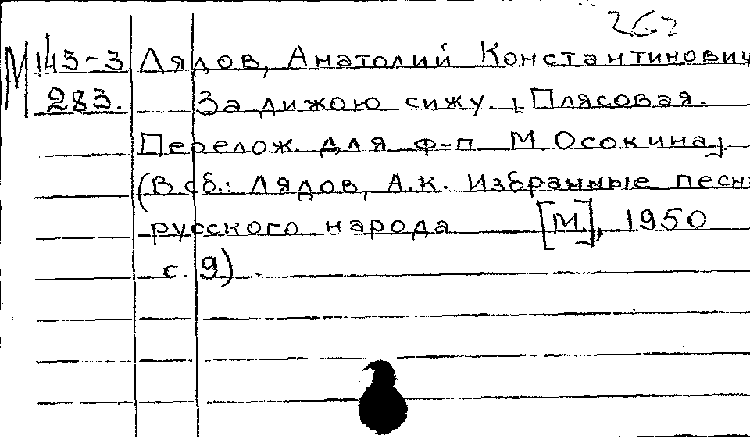 262
М 143-3 Лядов, Анатолий Константинович
283. За дижою сижу. [Плясовая.
Перелож. для ф-п М. Осокина]
(В сб.: Лядов, А.К. Избранные песн
русского народа [М.], 1950
с. 9).